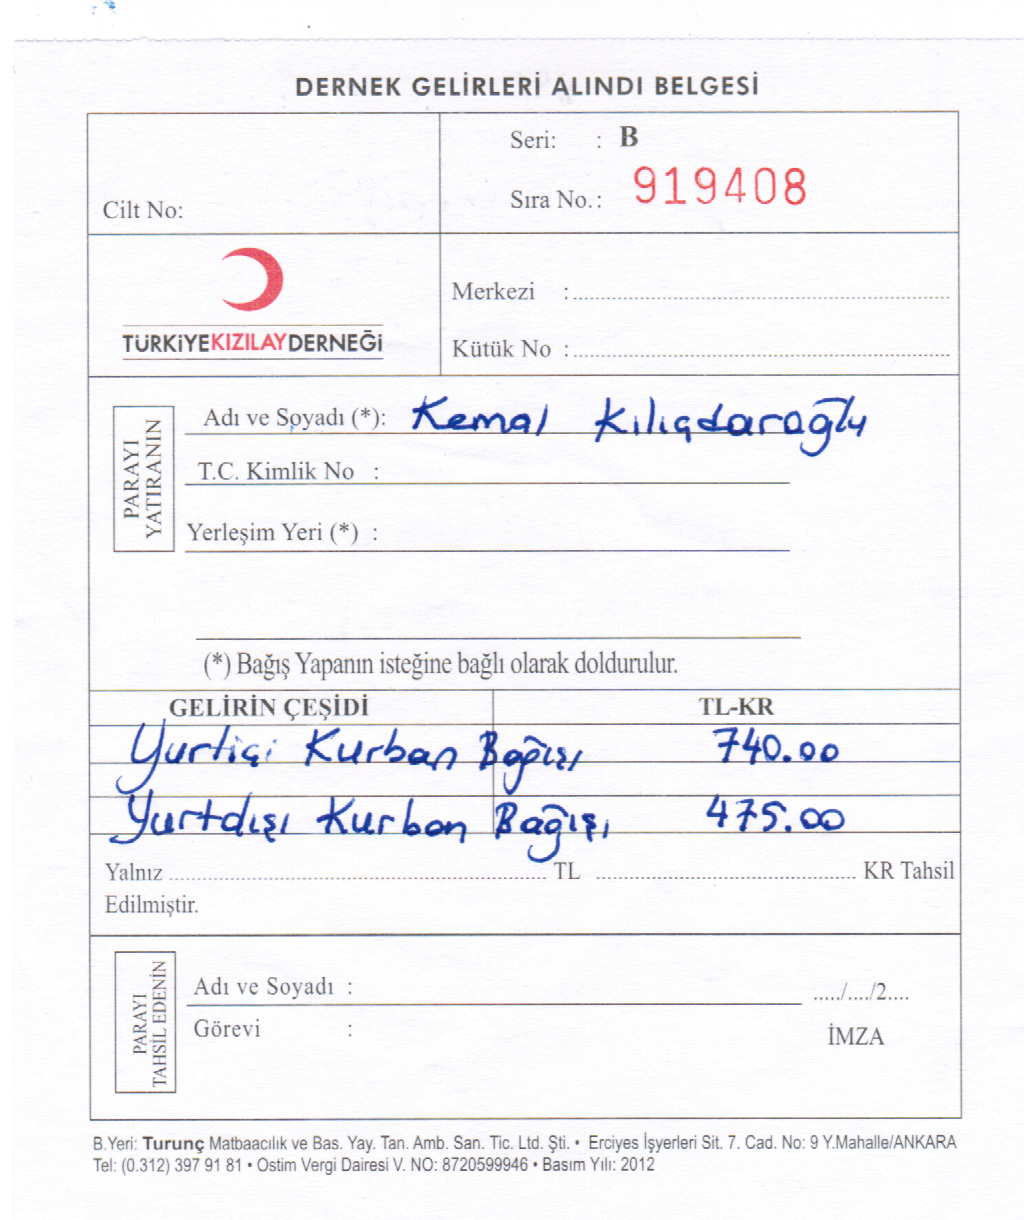 DERNEK GELİRLERİ ALINDI BELGESİ
Seri: : B
Cilt No:
Sıra No.: 919408
TÜRKİYEKIZILAYDERNEĞİ
Merkezi :
Kütük No :
PARAYI YATIRANIN
Adı ve Soyadı (*): Kemal Kılıçdaroğlu
T.C. Kimlik No :
Yerleşim Yeri (*) :
(*) Bağış Yapanın isteğine bağlı olarak doldurulur.
GELİRİN ÇEŞİDİ TL-KR
Yurtiçi Kurban Bağışı 740.00
Yurtdışı Kurban Bağışı 475.00
Yalnız ............ TL ............ KR Tahsil
Edilmiştir.
PARAYI TAHSİL EDENİN
Adı ve Soyadı : ...../..../2....
Görevi : İMZA
B.Yeri: Turunç Matbaacılık ve Bas. Yay. Tan. Amb. San. Tic. Ltd. Şti. • Erciyes İşyerleri Sit. 7. Cad. No: 9 Y.Mahalle/ANKARA
Tel: (0.312) 397 91 81 • Ostim Vergi Dairesi V. NO: 8720599946 • Basım Yılı: 2012